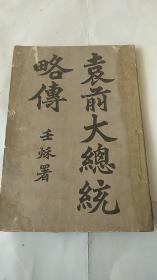 袁前大總統
略傳
壬穌署